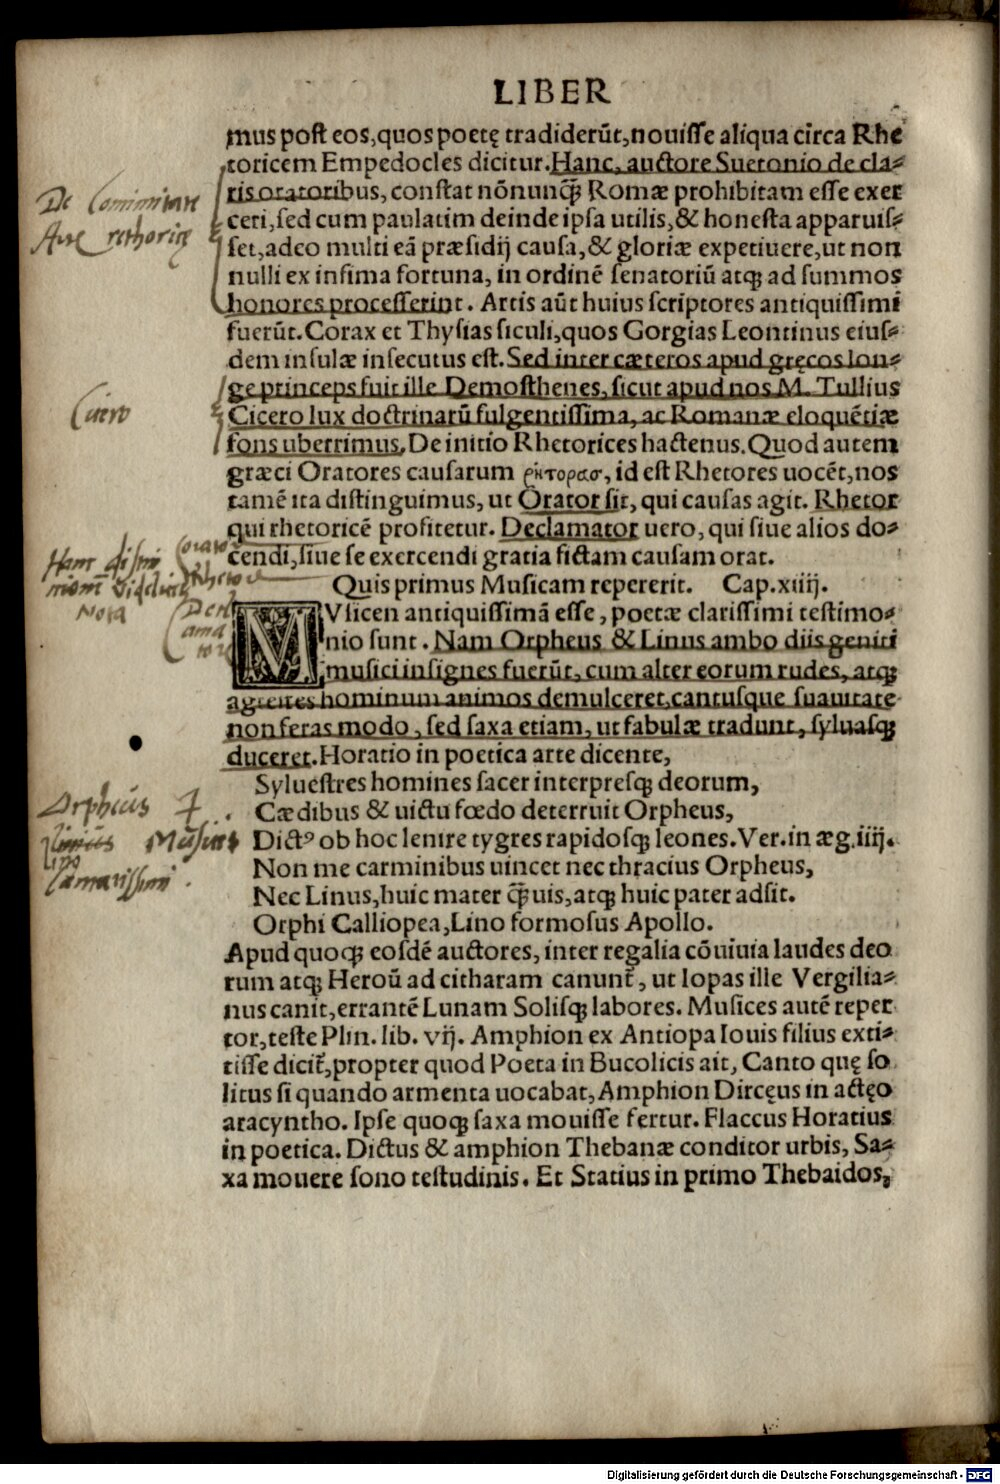 LIBER
mus post eos, quos poetę tradiderũt, nouisse aliqua circa Rhe
toricem Empedocles dicitur. Hanc, auctore Suetonio de cla-
ris oratoribus, constat nõnunq̃ Romæ prohibitam esse exer
ceri, sed cum paulatim deinde ipsa utilis, & honesta apparuis-
set, adeo multi eã præsidij causa, & gloriæ expetiuere, ut non
nulli ex infima fortuna, in ordinẽ senatoriũ atqꝫ ad summos
honores processerint. Artis aũt huius scriptores antiquissimi
fuerũt. Corax et Thysias siculi, quos Gorgias Leontinus eius-
dem insulæ insecutus est. Sed inter cæteros apud gręcos lon-
ge princeps fuit ille Demosthenes, sicut apud nos M. Tullius
Cicero lux doctrinarũ fulgentissima, ac Romanæ eloquẽtiæ
fons uberrimus. De initio Rhetorices hactenus. Quod autem
græci Oratores causarum ῥήτορας, id est Rhetores uocẽt, nos
tamẽ ita distinguimus, ut Orator sit, qui causas agit. Rhetor
qui rhetoricẽ profitetur. Declamator uero, qui siue alios do-
cendi, siue se exercendi gratia fictam causam orat.
Quis primus Musicam repererit. Cap. xiiij.
MVsicen antiquissimã esse, poetæ clarissimi testimo-
nio sunt. Nam Orpheus & Linus ambo diis geniti
musici insignes fuerũt, cum alter eorum rudes, atqꝫ
agrestes hominum animos demulceret, cantusque suauitate
non feras modo, sed saxa etiam, ut fabulæ tradunt, syluasqꝫ
duceret. Horatio in poetica arte dicente,
Syluestres homines sacer interpresqꝫ deorum,
Cædibus & uictu fœdo deterruit Orpheus,
Dictꝰ ob hoc lenire tygres rapidosqꝫ leones. Ver. in æg. iiij.
Non me carminibus uincet nec thracius Orpheus,
Nec Linus, huic mater q̃uis, atqꝫ huic pater adsit.
Orphi Calliopea, Lino formosus Apollo.
Apud quoqꝫ eosdẽ auctores, inter regalia cõuiuia laudes deo
rum atqꝫ Heroũ ad citharam canunt̃, ut Iopas ille Vergilia-
nus canit, errantẽ Lunam Solisqꝫ labores. Musices autẽ reper
tor, teste Plin. lib. vij. Amphion ex Antiopa Iouis filius exti-
tisse dicit̃, propter quod Poeta in Bucolicis ait, Canto quę so
litus si quando armenta uocabat, Amphion Dircęus in actęo
aracyntho. Ipse quoqꝫ saxa mouisse fertur. Flaccus Horatius
in poetica. Dictus & amphion Thebanæ conditor urbis, Sa-
xa mouere sono testudinis. Et Statius in primo Thebaidos,
Cicero
Orator
Rhetor
Nota
Decla
ama
tor
Orpheus
Linus Musices
Digitalisierung gefördert durch die Deutsche Forschungsgemeinschaft - DFG